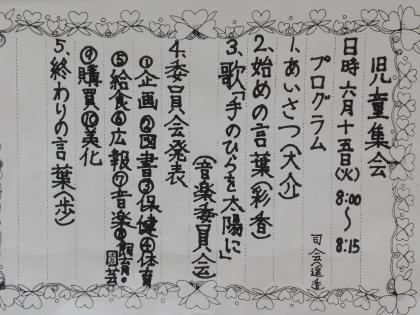 児童集会
日時 六月十五日(火) 8:00〜8:15
プログラム
司会(遥香)
1、あいさつ(大介)
2、始めの言葉(彩香)
3、歌「手のひらを太陽に」
(音楽委員会)
4、委員会発表
①企画②図書③保健④体育
⑤給食⑥広報⑦音楽⑧飼育・園芸
⑨購買⑩美化
5、終わりの言葉(歩)